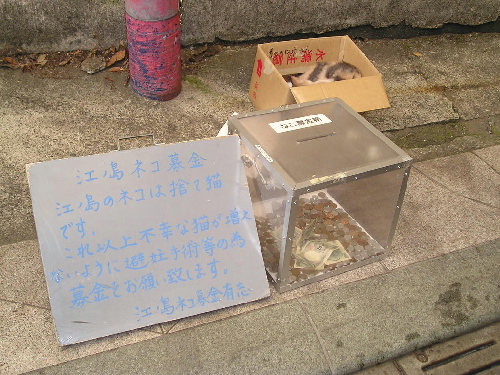 江ノ島ネコ募金
江ノ島のネコは捨て猫
です。
これ以上不幸な猫が増え
ないように避妊手術等の為
募金をお願い致します。
江ノ島ネコ募金有志